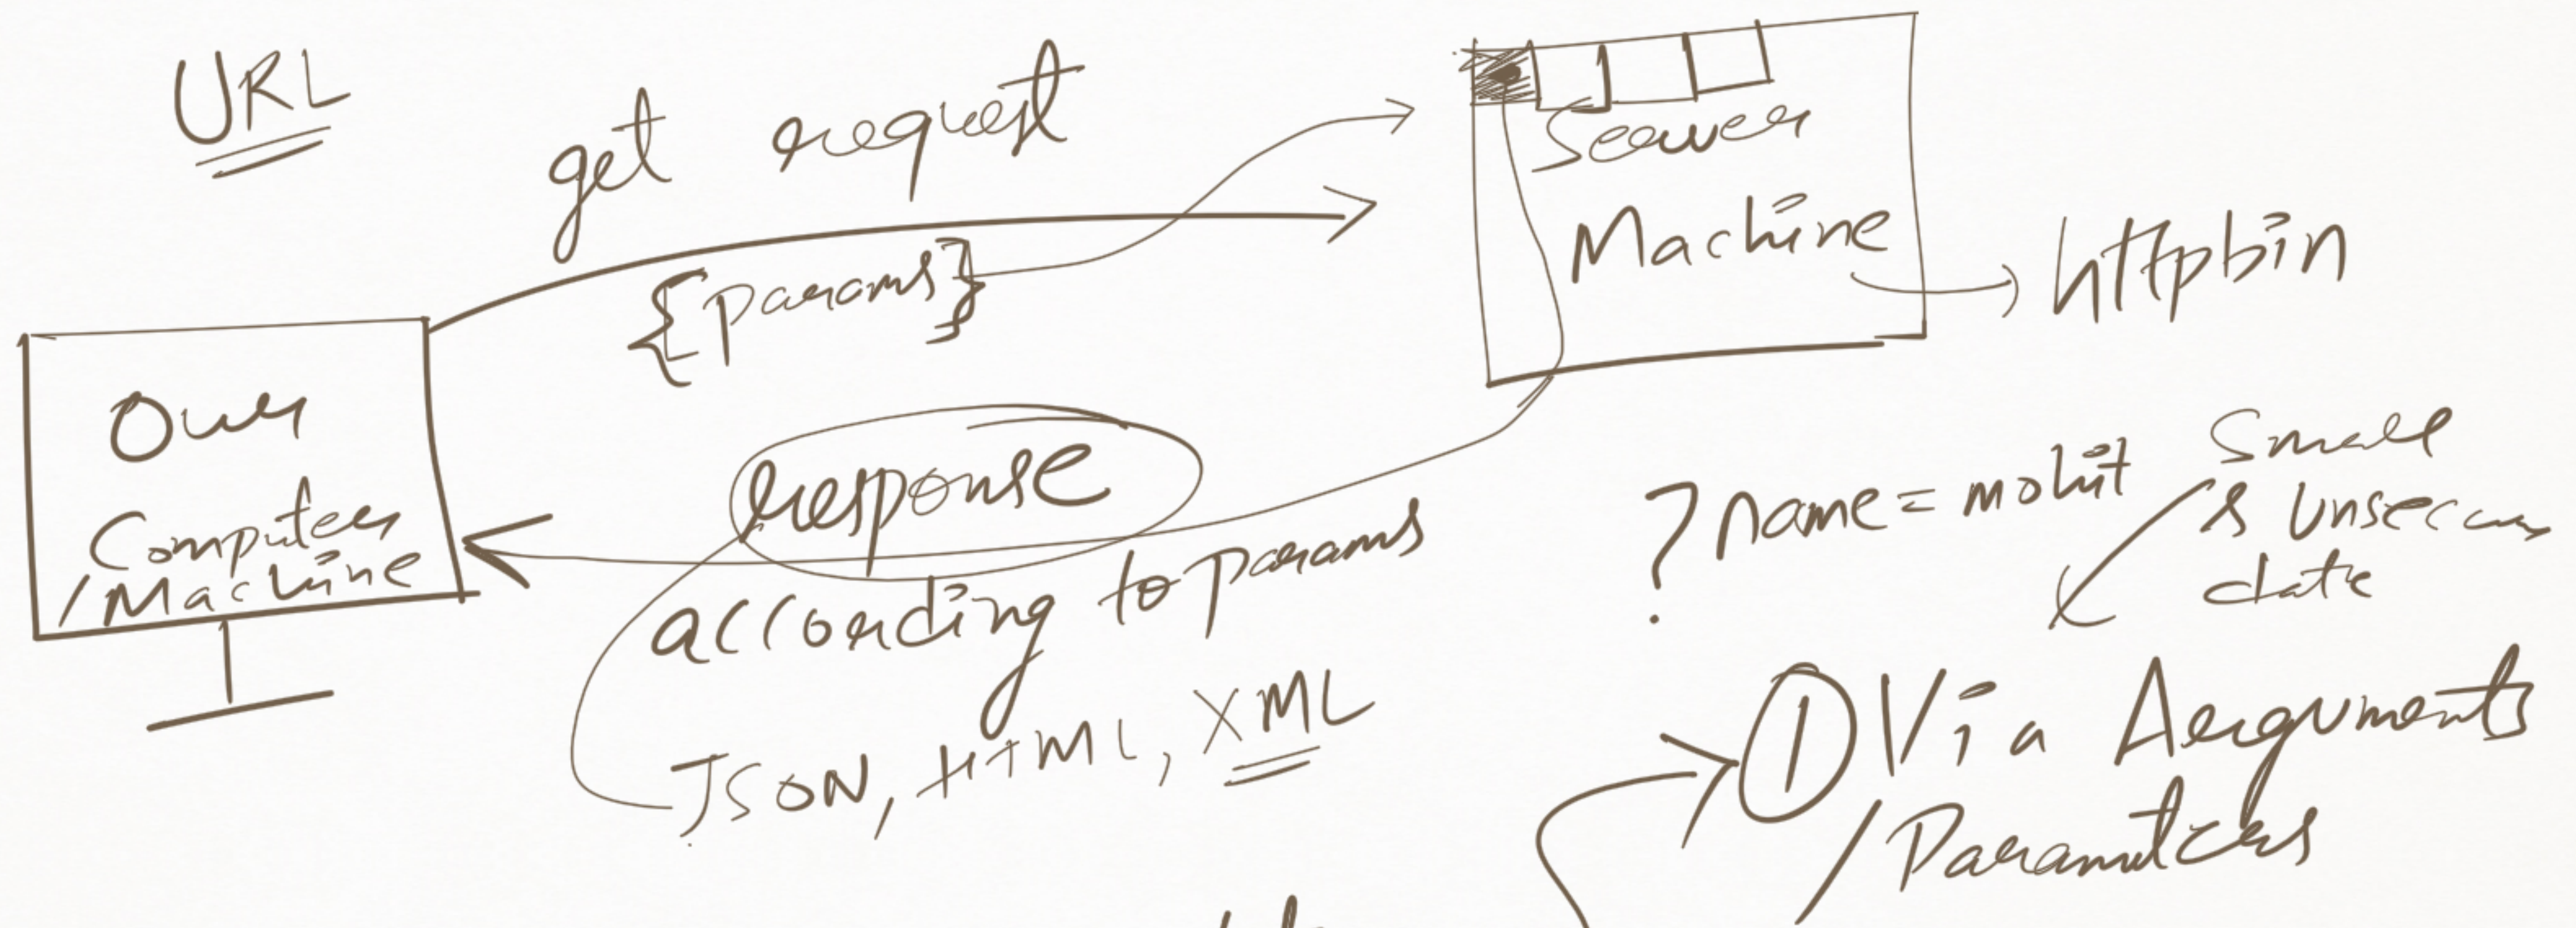 URL
get request
{params}
Server
Machine
httpbin
Our
Computer
/Machine
response
according to params
JSON, HTML, XML
?name=mohit
Small
& Unsecure
data
① Via Arguments
/Parameters